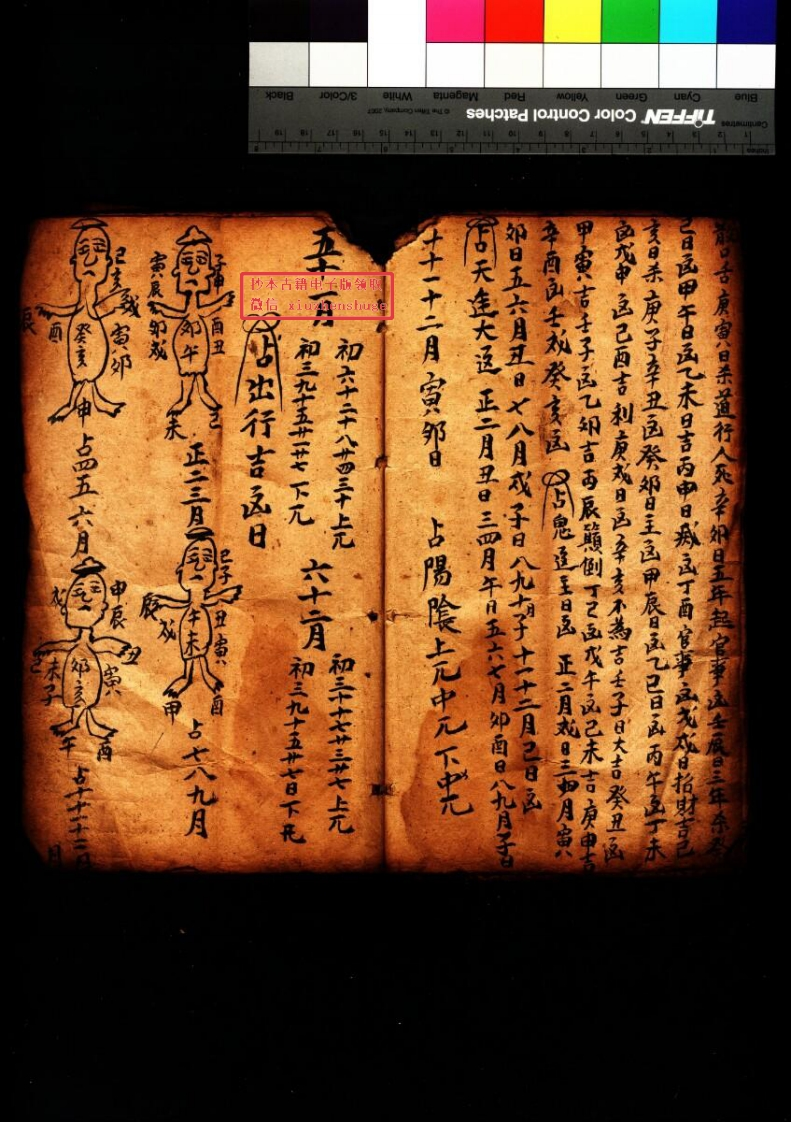 口舌庚寅日杀道行人死辛卯日五年起官事凶壬辰日三年杀癸
己日凶甲午日凶乙未日吉丙申日凶丁酉官事凶戊戌日招財吉己
亥日杀庚子辛丑凶癸卯日主凶甲辰日凶乙巳日凶丙午凶丁未
凶戊申凶己酉吉利庚戌日凶辛亥不為吉壬子日大吉癸丑凶
甲寅吉壬子凶乙卯吉丙辰顛倒丁巳凶戊午凶己未吉庚申吉
辛酉凶壬戌癸亥凶 占鬼主日凶 正二月戌日三四月寅
卯日五六月丑日七八月戌子日八九月子十一十二月己日凶
占天大 正二月丑日三四月午日五六七月卯酉日八九月子日
十十一十二月寅卯日 占陽陰上兀中兀下中兀
五十一月 初六十二十八廿四三十上兀
初三九十五廿一廿七下兀
六十二月 初三十十七廿三廿七上兀
初三九十五廿七日下兀
占出行吉凶日
子申
酉丑
巳
卯午
寅辰
卯戌
未
正二三月
巳子
丑寅
酉
午未
辰
戌
甲
占七八九月
己亥
戌
寅卯
癸亥
酉
辰
申
占四五六月
申辰
丑
寅
酉
卯亥
戌
己
未子
午
占十十一十二
月
抄本古籍电子版领取
微信 xiuzhenshuge
TIFFEN Color Control Patches
© The Tiffen Company, 2007
Centimetres
Inches
Blue
Cyan
Green
Yellow
Red
Magenta
White
3/Color
Black
1
2
3
4
5
6
7
8
9
10
11
12
13
14
15
16
17
18
19